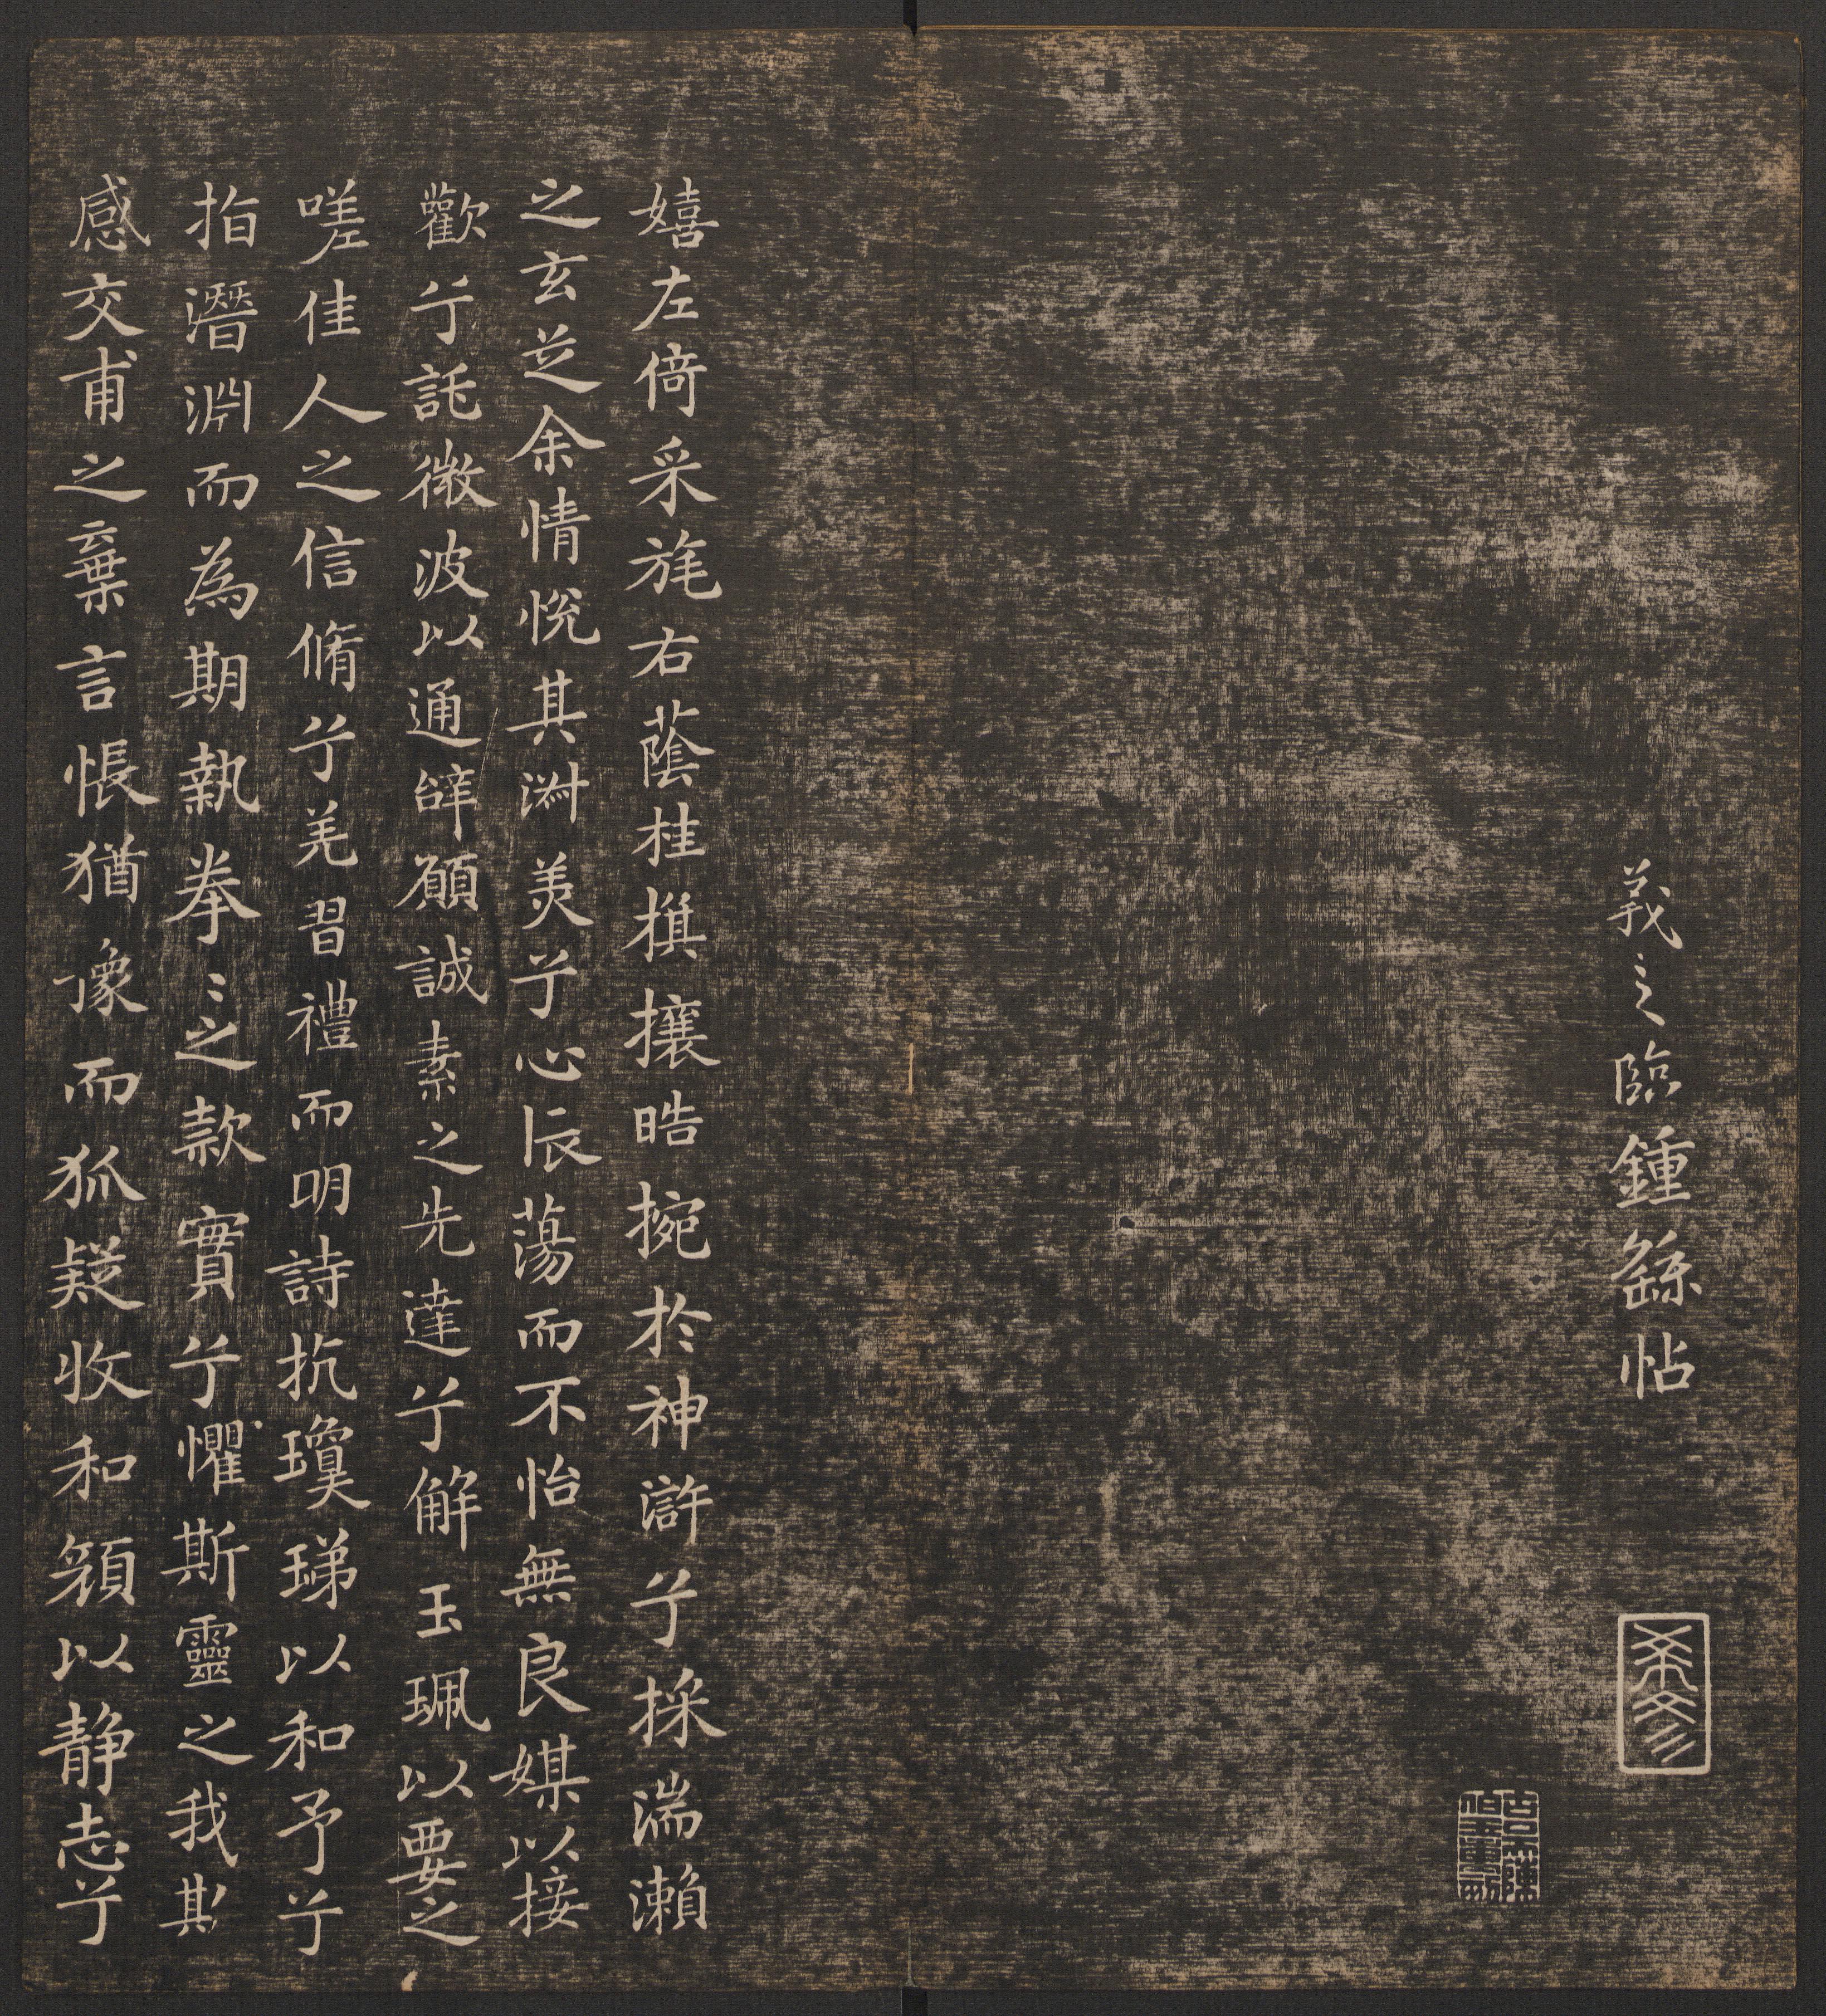 羲之臨鍾繇帖
嬉左倚采旄右蔭桂旗攘皓捥於神滸兮採湍瀨
之玄芝余情悅其淑美兮心振蕩而不怡無良媒以接
歡兮託微波以通辭願誠素之先達兮解玉珮以要之
嗟佳人之信脩兮羌習禮而明詩抗瓊珶以和予兮
指潛淵而為期執拳〻之款實兮懼斯靈之我欺
感交甫之棄言悵猶豫而狐疑收和顏以靜志兮